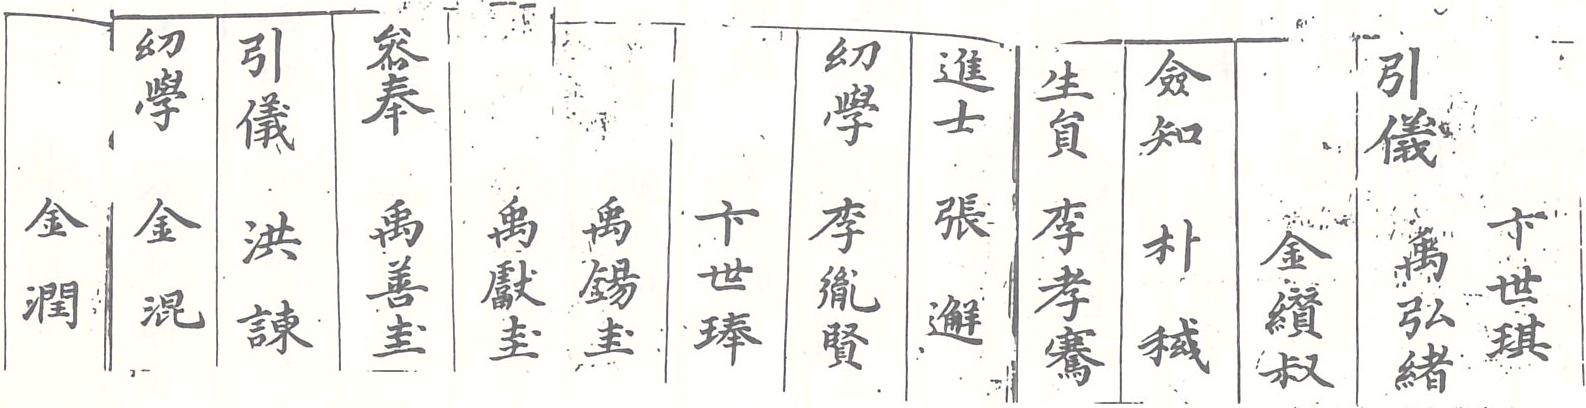 卞世琪
引儀 禹弘緖
金纘叔
僉知 朴 稶
生貟 李孝騫
進士 張 邂
幼學 李胤賢
卞世琫
禹錫圭
禹獻圭
叅奉 禹善圭
引儀 洪 諫
幼學 金 混
金 潤